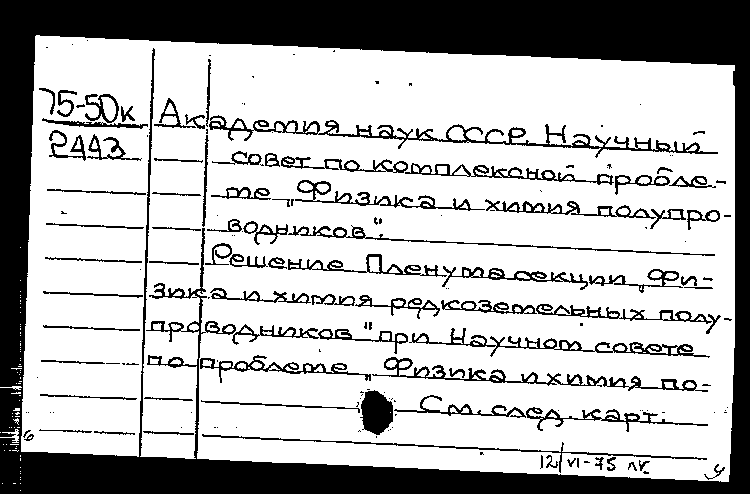 75-50к
2443
Академия наук СССР. Научный
совет по комплексной пробле-
ме „Физика и химия полупро-
водников".
Решение Пленума секции „Фи-
зика и химия редкоземельных полу-
проводников" при Научном совете
по проблеме „Физика и химия по-
См. след. карт.
12/VI-75